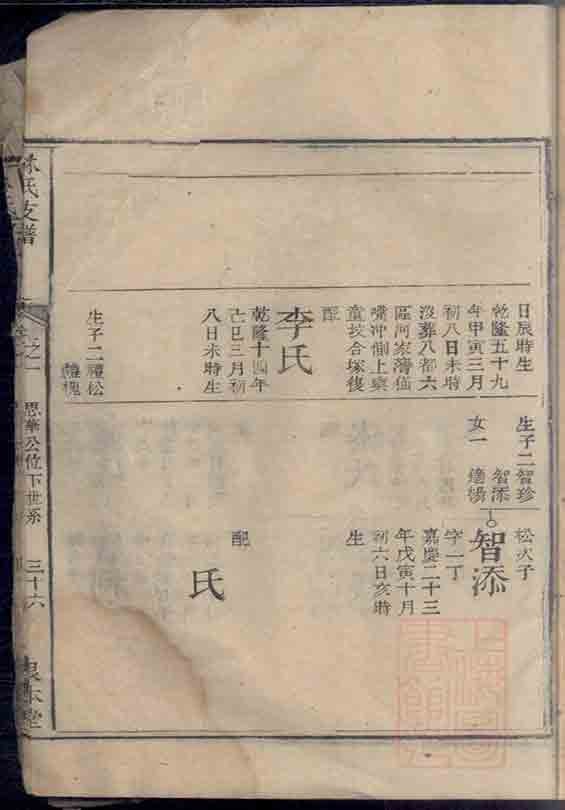 日辰時生
乾隆五十九
年甲寅三月
初八日未時
沒葬八都六
區河家灣仙
嘴冲側上
童坟合塚後
配
李氏
乾隆十四年
己巳三月初
八日未時生
生子二禮松
禮槐
生子二智珍
智添
女一適楊
松次子
智添
字一丁
嘉慶二十三
年戊寅十月
初六日亥時
生
配
氏
林氏支譜
卷之一
思華公位下世系
三十六
堂
上海圖
書館藏